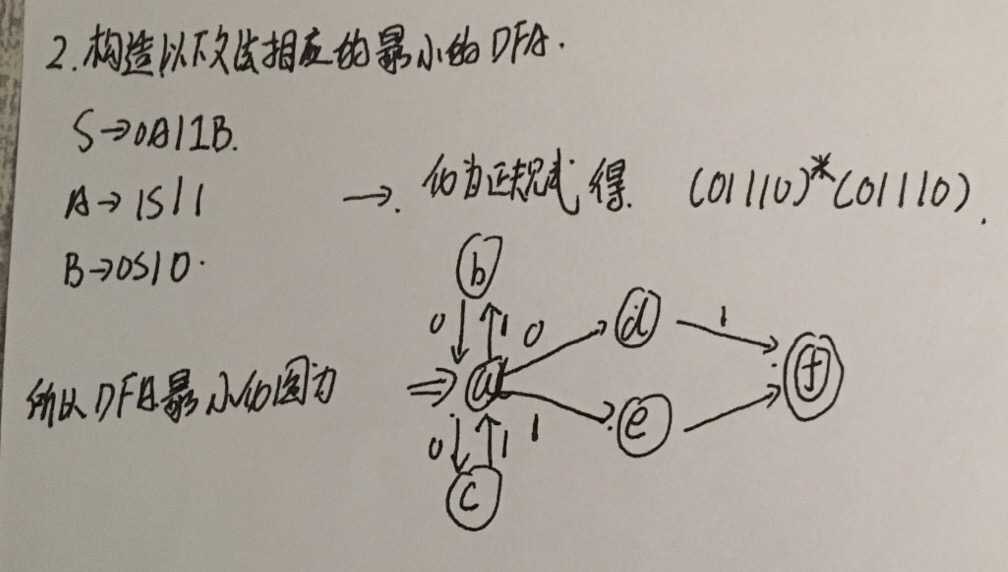 2.构造以下文法相应的最小的DFA.
S→0A|1B.
A→1S|1 → 化为正规式得 (01|10)*(01|10).
B→0S|0.
b
0 1 0 d 1
所以DFA最小化图为 ⇒ a f
0 1 1 e
c